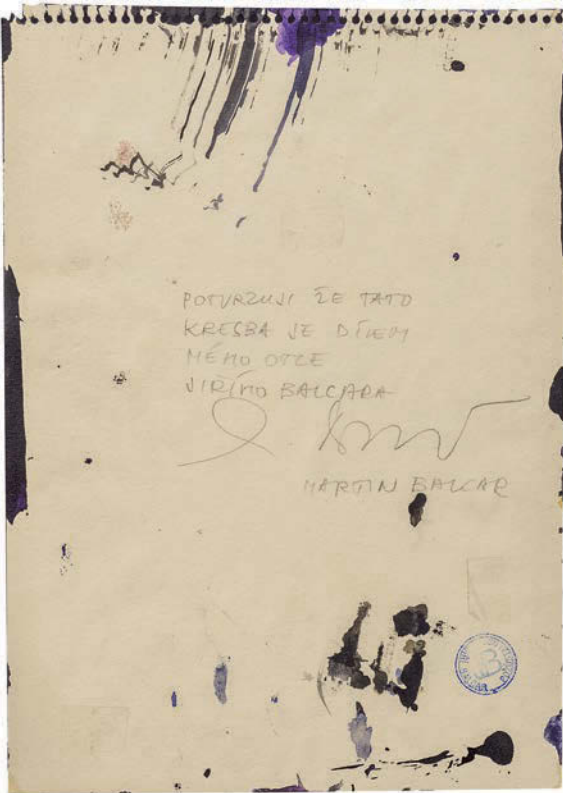 POTVRZUJI ŽE TATO
KRESBA JE DÍLEM
MÉHO OTCE
JIŘÍHO BALCARA
MARTIN BALCAR